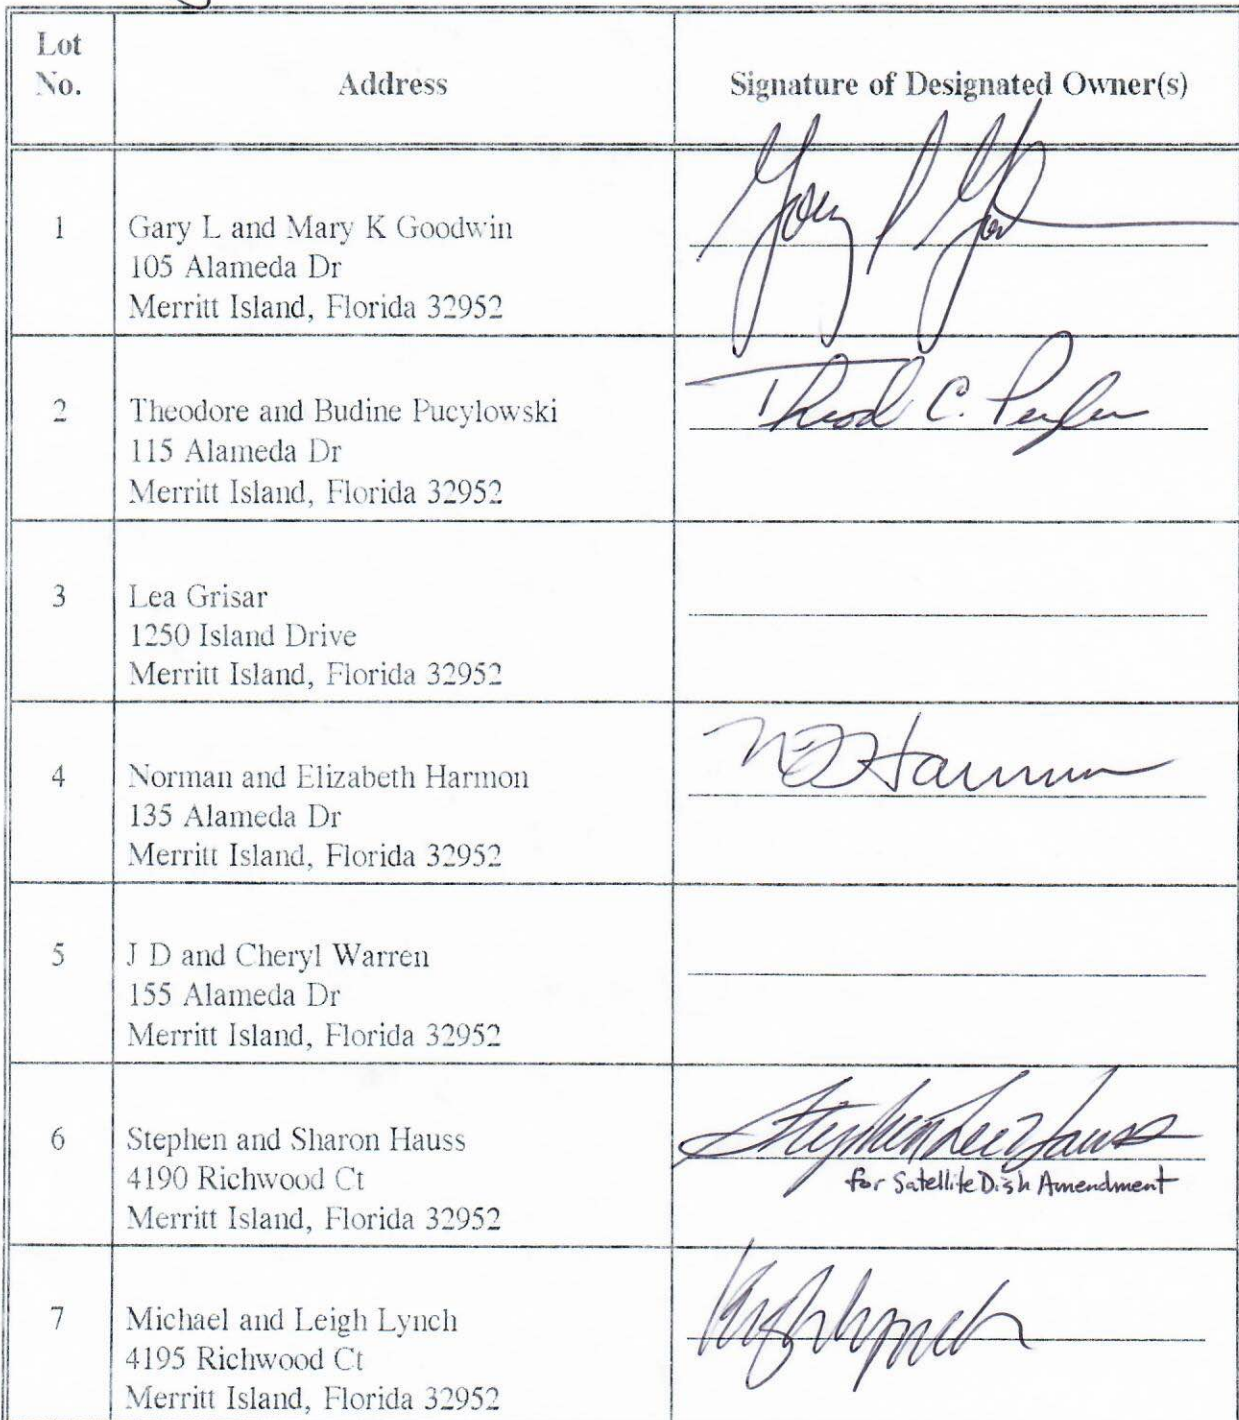 Lot
No.
Address
Signature of Designated Owner(s)
1
Gary L and Mary K Goodwin
105 Alameda Dr
Merritt Island, Florida 32952
2
Theodore and Budine Pucylowski
115 Alameda Dr
Merritt Island, Florida 32952
Theod C.
3
Lea Grisar
1250 Island Drive
Merritt Island, Florida 32952
4
Norman and Elizabeth Harmon
135 Alameda Dr
Merritt Island, Florida 32952
Harmon
5
J D and Cheryl Warren
155 Alameda Dr
Merritt Island, Florida 32952
6
Stephen and Sharon Hauss
4190 Richwood Ct
Merritt Island, Florida 32952
Stephen Lee Hauss
for Satellite Dish Amendment
7
Michael and Leigh Lynch
4195 Richwood Ct
Merritt Island, Florida 32952
Leigh Lynch